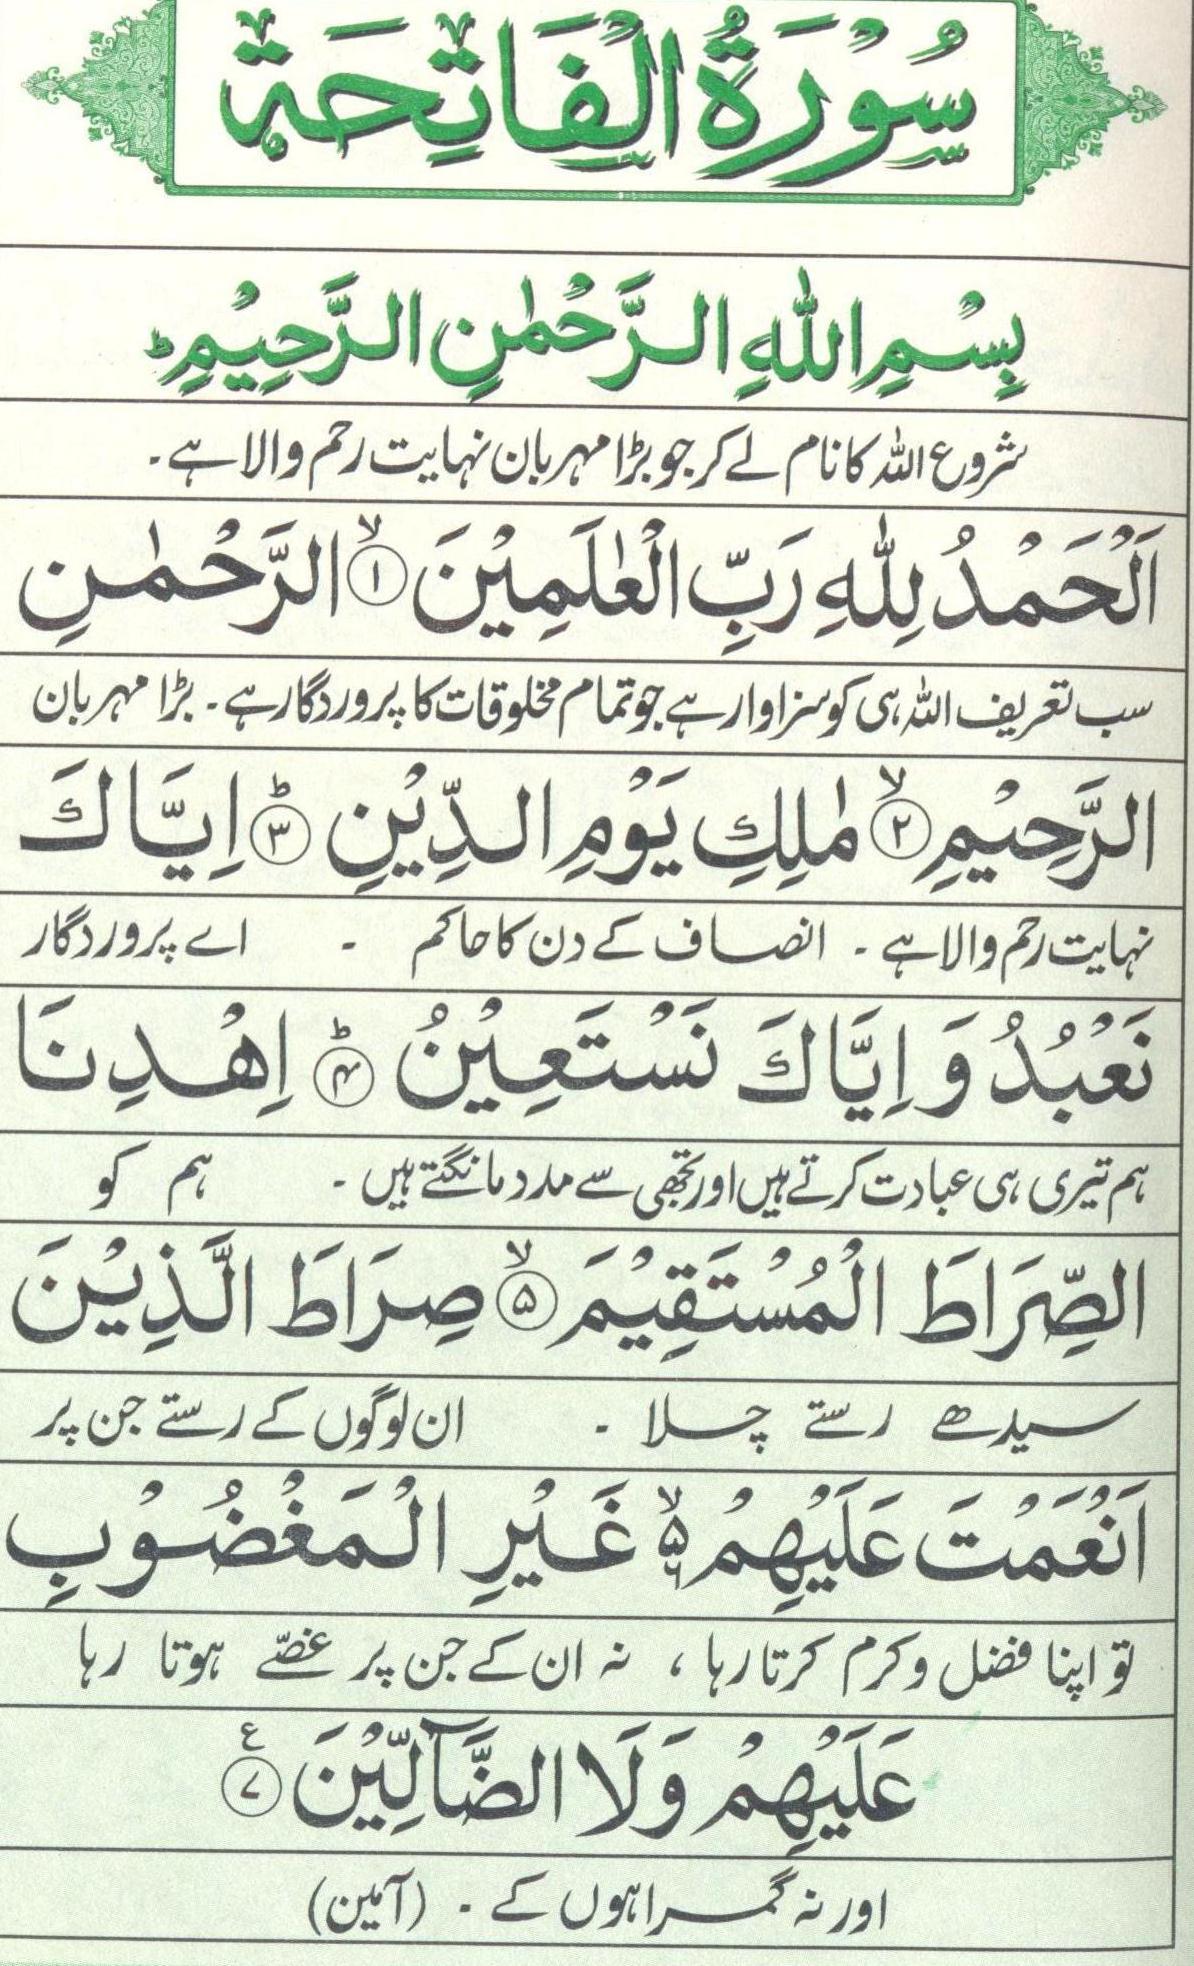 سُوْرَةُ الْفَاتِحَة
بِسْمِ اللّٰهِ الرَّحْمٰنِ الرَّحِيْمِ ؕ
شروع اللہ کا نام لے کر جو بڑا مہربان نہایت رحم والا ہے۔
اَلْحَمْدُ لِلّٰهِ رَبِّ الْعٰلَمِيْنَ ۙ﴿۱﴾ الرَّحْمٰنِ
سب تعریف اللہ ہی کو سزاوار ہے جو تمام مخلوقات کا پروردگار ہے۔ بڑا مہربان
الرَّحِيْمِ ۙ﴿۲﴾ مٰلِكِ يَوْمِ الدِّيْنِ ؕ﴿۳﴾ اِيَّاكَ
نہایت رحم والا ہے۔ انصاف کے دن کا حاکم ۔ اے پروردگار
نَعْبُدُ وَ اِيَّاكَ نَسْتَعِيْنُ ؕ﴿۴﴾ اِهْدِنَا
ہم تیری ہی عبادت کرتے ہیں اور تجھی سے مدد مانگتے ہیں ۔ ہم کو
الصِّرَاطَ الْمُسْتَقِيْمَ ۙ﴿۵﴾ صِرَاطَ الَّذِيْنَ
سیدھے رستے چلا ۔ ان لوگوں کے رستے جن پر
اَنْعَمْتَ عَلَيْهِمْ ۙ۵ ۶ غَيْرِ الْمَغْضُوْبِ
تو اپنا فضل وکرم کرتا رہا ، نہ ان کے جن پر غصّے ہوتا رہا
عَلَيْهِمْ وَلَا الضَّآلِّيْنَ ﴿۷﴾ ع
اور نہ گمراہوں کے ۔ (آمین)